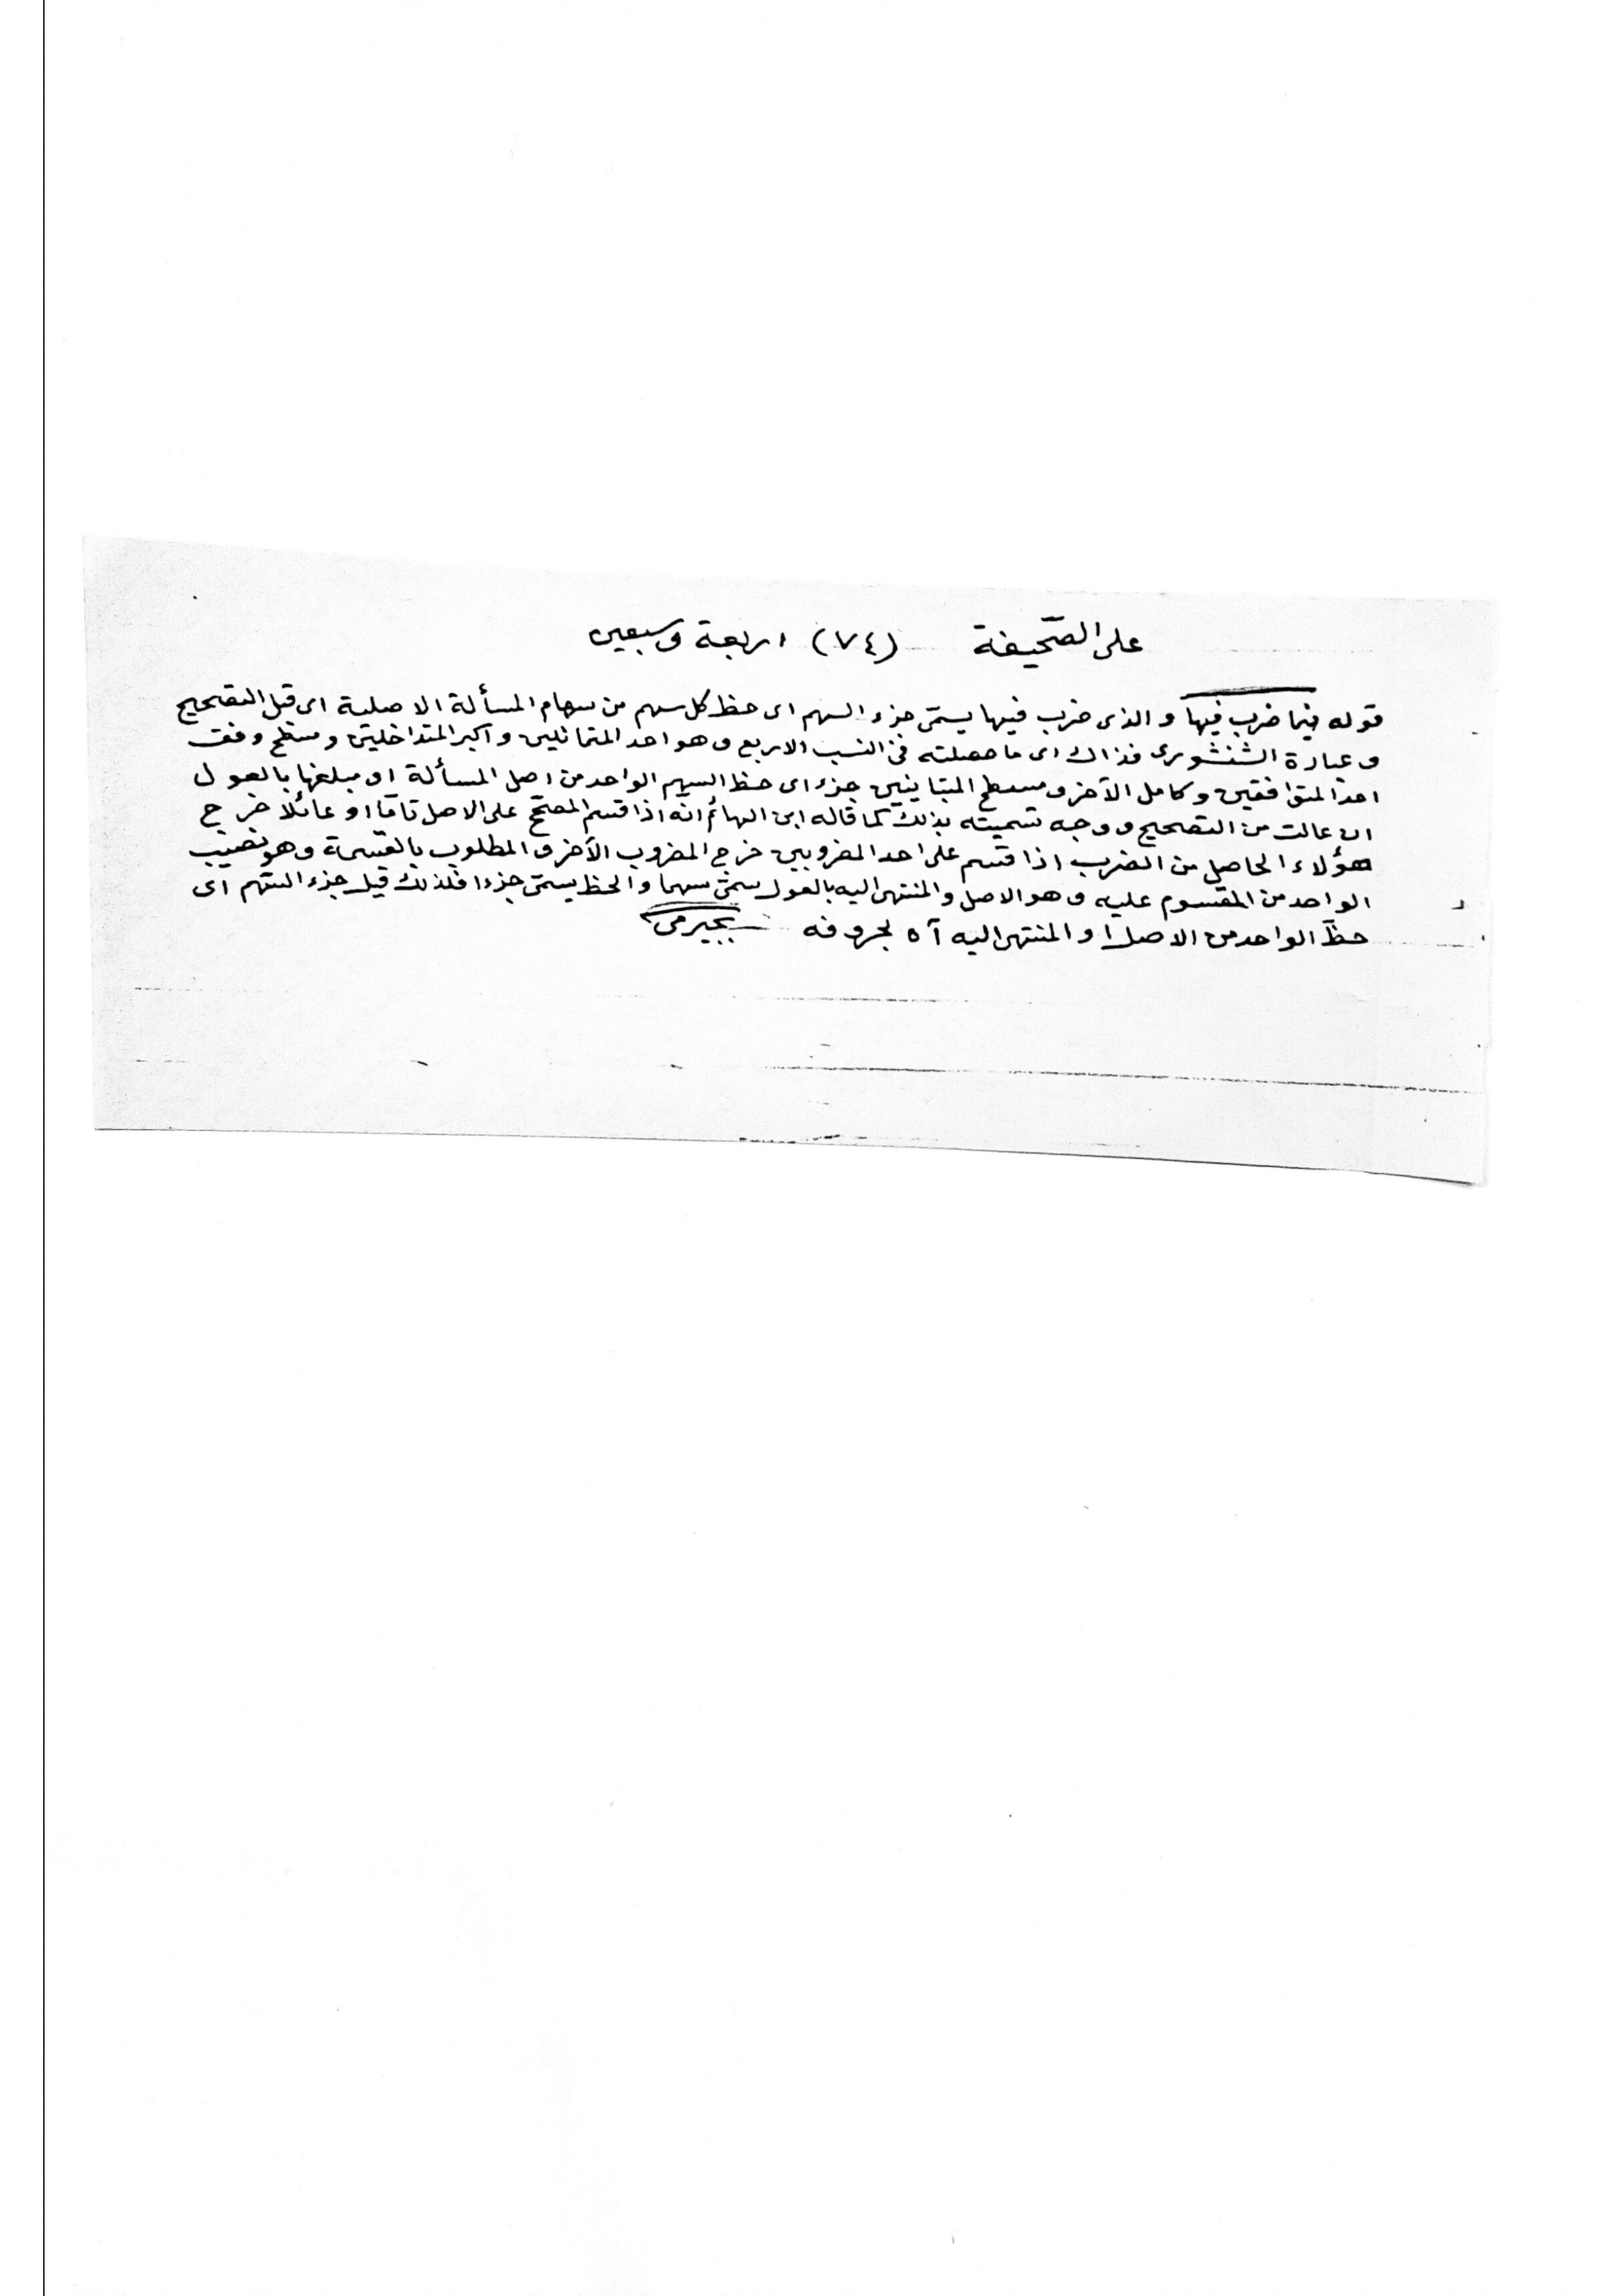 على الصّحيفة (٧٤) اربعة وسبعين
قوله فيما ضرب فيها والذى ضرب فيها يسمّى جزء السهم اى حظ كل سهم من سهام المسألة الاصلية اى قبل التصحيح
وعبارة الشنشورى فذاك اى ما حصلته فى النسب الاربع وهو احد المتماثلين واكبر المتداخلين ومسطح وفق
احد المتوافقين وكامل الآخر ومسطح المتباينين جزء اى حظ السهم الواحد من اصل المسألة او مبلغها بالعول
ان عالت من التصحيح ووجه تسميته بذلك كما قاله ابن الهائم انه اذا قسم المصحّح على الاصل تامّا او عائلا خرج
هؤلاء الحاصل من الضرب اذا قسم على احد المضروبين خرج المضروب الآخر والمطلوب بالقسمة وهو نصيب
الواحد من المقسوم عليه وهو الاصل والمنتهى اليه بالعول سمّى سهما والحظ يسمّى جزءا فلذلك قيل جزء السّهم اى
حظّ الواحد من الاصل او المنتهى اليه آه بحروفه بجيرمى